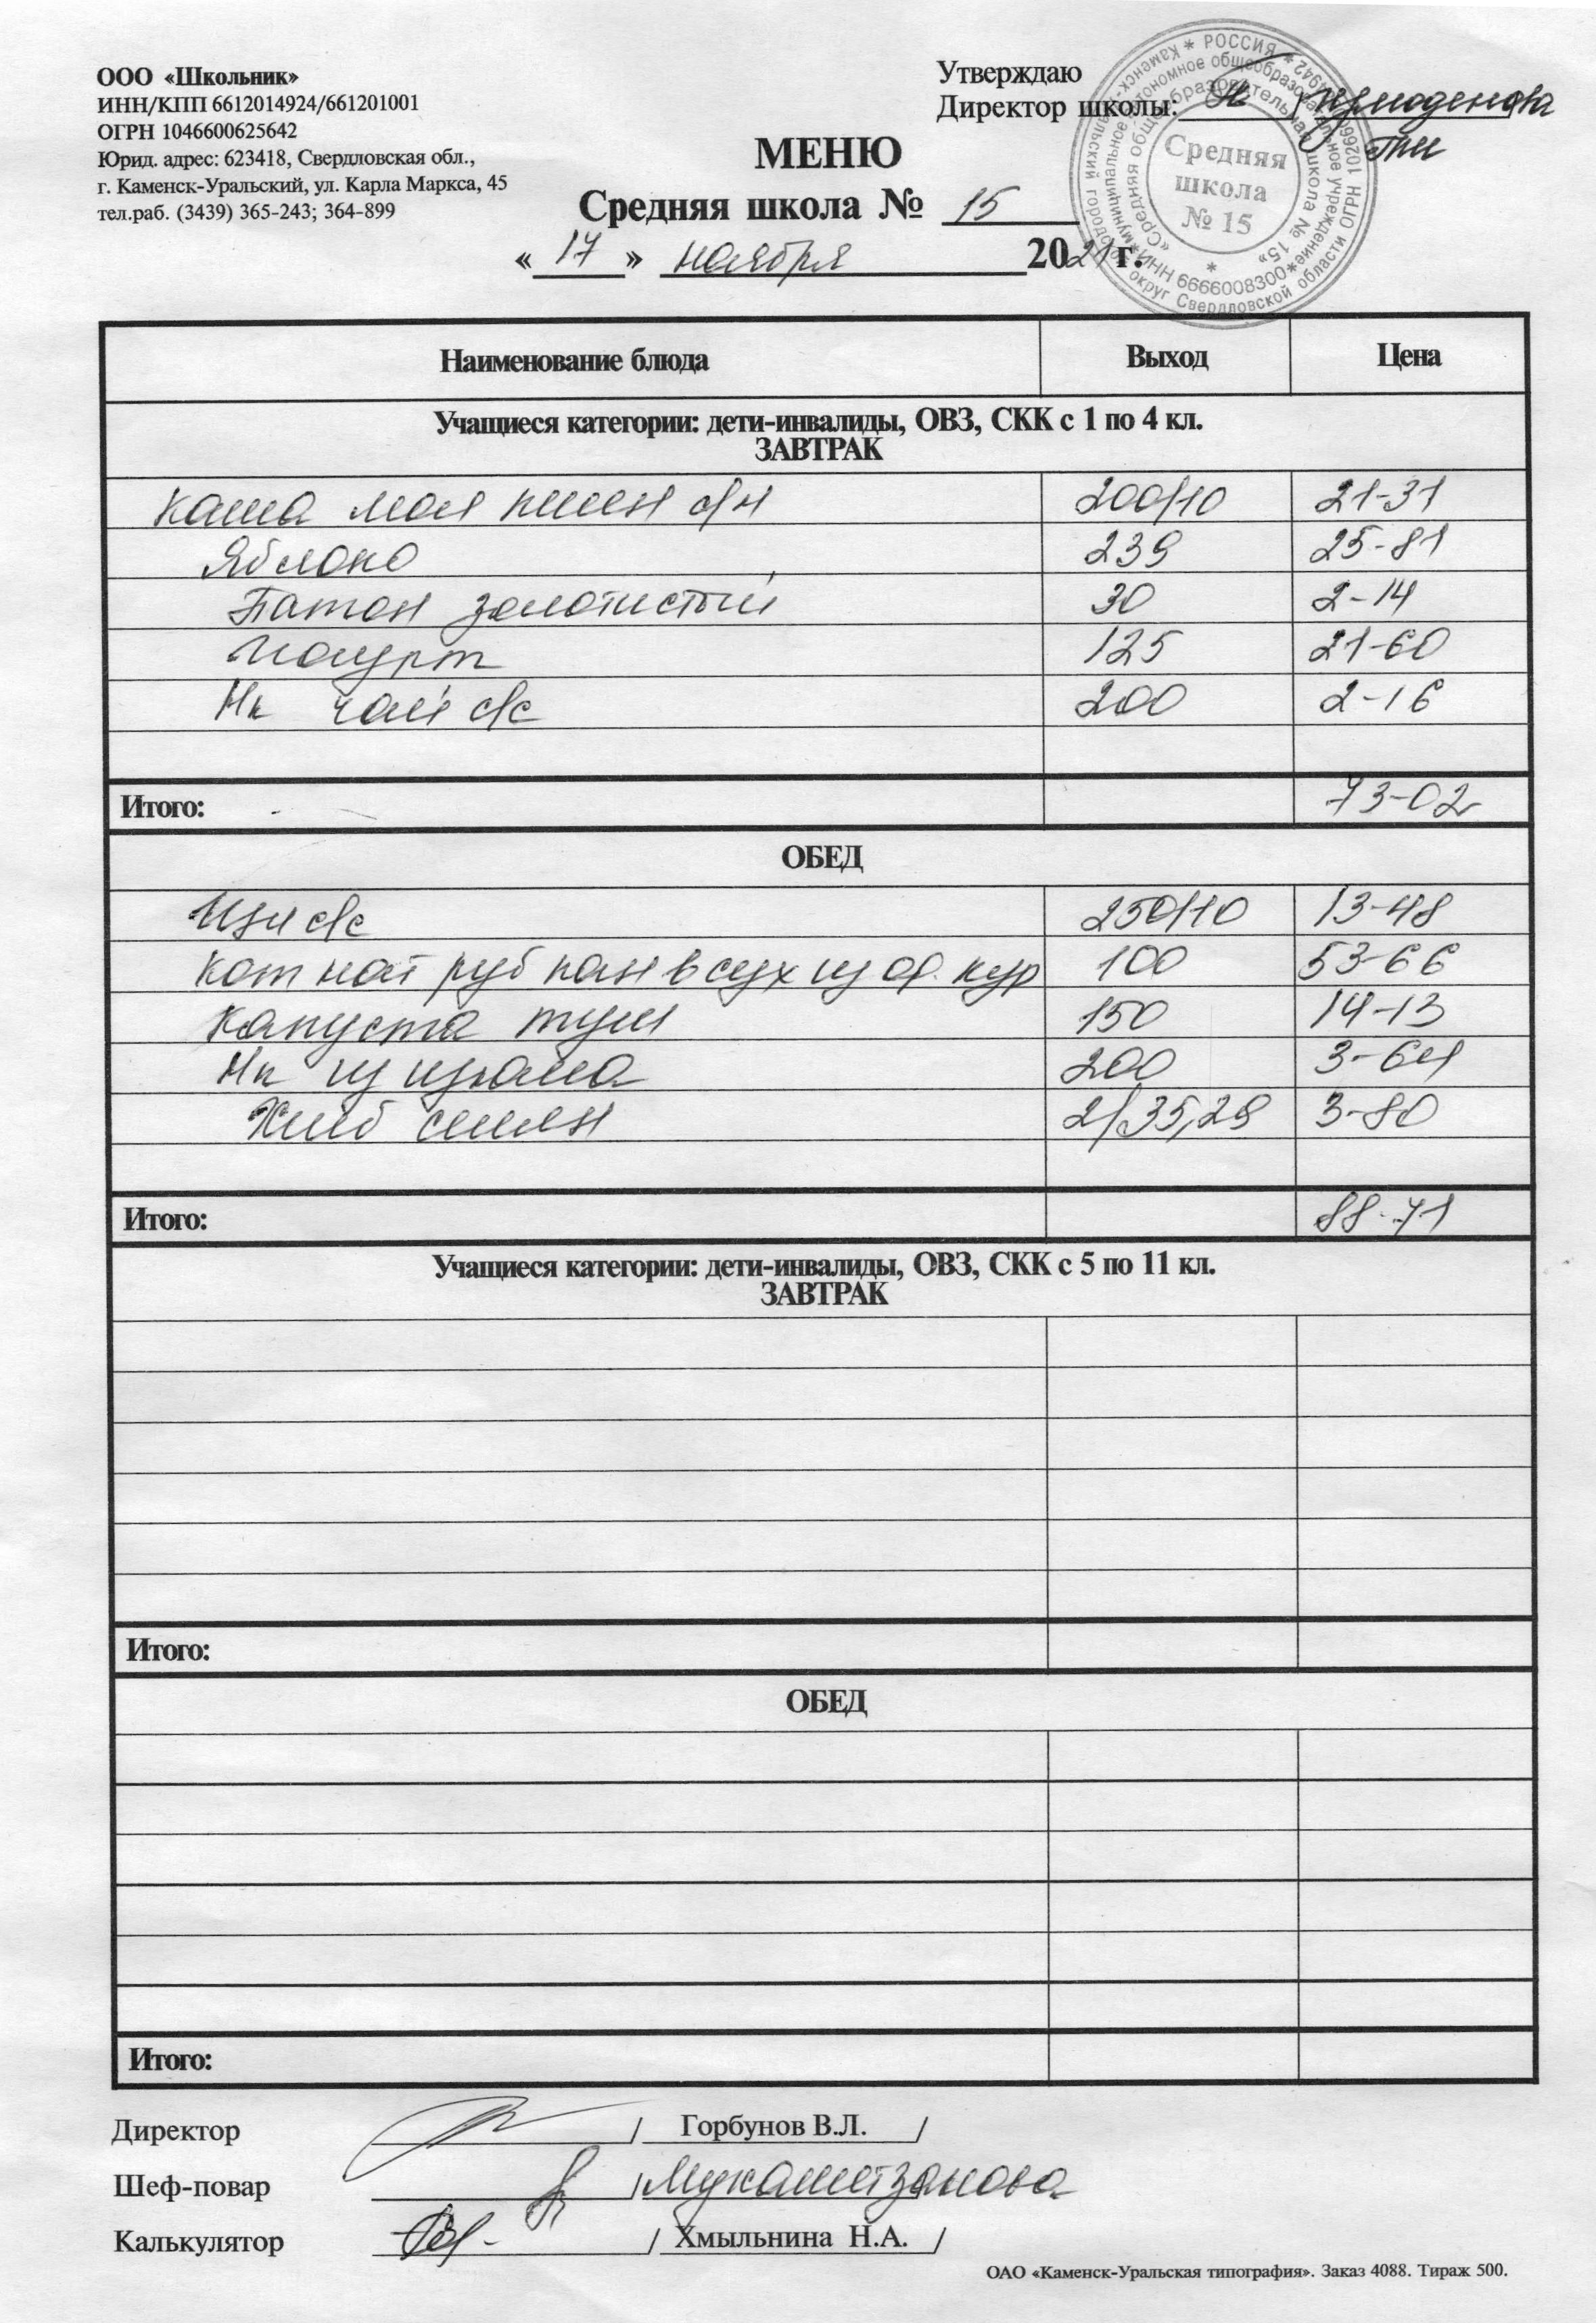 ООО «Школьник»
ИНН/КПП 6612014924/661201001
ОГРН 1046600625642
Юрид. адрес: 623418, Свердловская обл.,
г. Каменск-Уральский, ул. Карла Маркса, 45
тел.раб. (3439) 365-243; 364-899
Утверждаю
Директор школы:
Средняя
школа
№ 15
МЕНЮ
Средняя школа № 15
« 17 » ноября 2021 г.
Наименование блюда Выход Цена
Учащиеся категории: дети-инвалиды, ОВЗ, СКК с 1 по 4 кл.
ЗАВТРАК
Каша мол пшен с/м 200/10 21-31
Яблоко 239 25-81
Батон золотистый 30 2-14
Йогурт 125 21-60
Нк чай с/с 200 2-16
Итого: 73-02
ОБЕД
Щи с/с 250/10 13-48
Кот нат руб пан в сух из ф. кур 100 53-66
Капуста туш 150 14-13
Нк из изюма 200 3-64
Хлеб смеш 2/35,29 3-80
Итого: 88-71
Учащиеся категории: дети-инвалиды, ОВЗ, СКК с 5 по 11 кл.
ЗАВТРАК
Итого:
ОБЕД
Итого:
Директор / Горбунов В.Л. /
Шеф-повар / Мухаметзянова
Калькулятор / Хмыльнина Н.А. /
ОАО «Каменск-Уральская типография». Заказ 4088. Тираж 500.